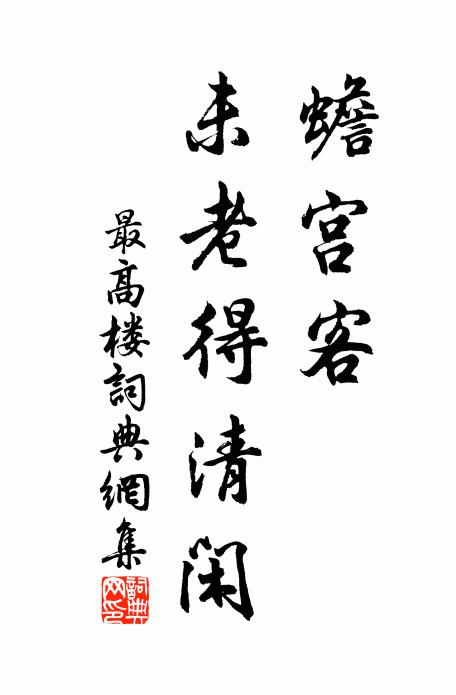 蟾宫客
未老得清閑
最高楼詞典網集
詞典网印